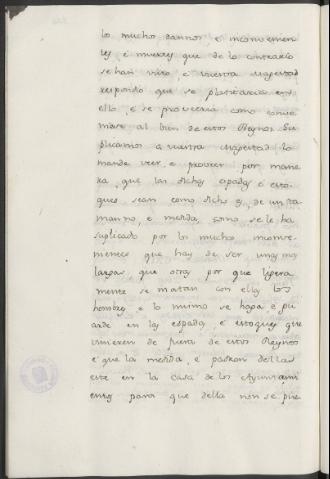 los muchos dannos, e inconvenien
tes e muertes que de lo contrario
se han visto, e vuestra Magestad
respondio que se platicaria en
ello, e se proveeria como convi
niese al bien de estos Reynos Su
plicamos a vuestra Magestad lo
mande veer e proveer por mane
ra, que las dichas espadas e esto
ques sean como dicho es, de un ta
manno, e medida, como se le ha
suplicado por los muchos inconve
nientes que hay de ser unas mas
largas, que otras por que ligera
mente se matan con ellas los
hombres e lo mismo se haga e gu
arde en las espadas, e estoques que
vinieren de fuera de estos Reynos
e que la medida, e patron dellas
este en la casa de los Ayuntami
entos para que della non se pue